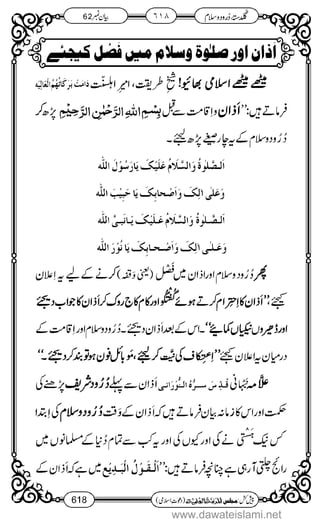 گلدستۂ دُرود و سلام ٦١٨ بیان نمبر 62
اذان اور صلوٰۃ وسلام میں فصل کیجئے
میٹھے میٹھے اسلامی بھائیو! شیخِ طریقت، امیرِ اہلسنّت دَامَتْ بَرَکَاتُہُمُ الْعَالِیَہ
فرماتے ہیں: ’’اذان و اِقامت سے قبل بِسْمِ اللهِ الرَّحْمٰنِ الرَّحِیْمِ پڑھ کر
دُرُود و سلام کے یہ چار صیغے پڑھ لیجئے۔
اَلصَّلٰوةُ وَالسَّلَامُ عَلَيْكَ يَارَسُوْلَ الله
وَعَلٰى اٰلِكَ وَاَصْحَابِكَ يَا حَبِيْبَ الله
اَلصَّلٰوةُ وَالسَّلَامُ عَلَيْكَ يَانَبِىَّ الله
وَعَلٰى اٰلِكَ وَاَصْحَابِكَ يَا نُوْرَ الله
پھر دُرُود و سلام اور اذان میں فَصْل (یعنی وقفہ) کرنے کے لیے یہ اِعلان
کیجئے، ’’اذان کا اِحتِرام کرتے ہوئے گفتگو اور کام کاج روک کر اذان کا جواب دیجئے
اور ڈھیروں نیکیاں کمائیے‘‘۔ اس کے بعد اذان دیجئے۔ دُرُود و سلام اور اِقامت کے
درمیان یہ اعلان کیجئے ’’اِعتِکاف کی نیَّت کر لیجئے، موبائل فون ہو تو بند کر دیجئے۔‘‘
علّامہ نَبْہَانی قُدِّسَ سِرُّہُ النُّوْرَانی اذان سے پہلے دُرُود شریف پڑھنے کی
حکمت اور اس کا زمانہ بیان فرماتے ہیں کہ اذان کے وَقت دُرُود و سلام کی اِبتِدا
کس نیک بَخْت نے کی اور کیوں کی اور یہ کب سے تمام دُنیا کے مسلمانوں میں
رائج چلی آرہی ہے چنانچہ فرماتے ہیں: ’’اَلْقَوْلُ الْبَدِیْع میں ہے کہ اذان کے
618
www.dawateislami.net